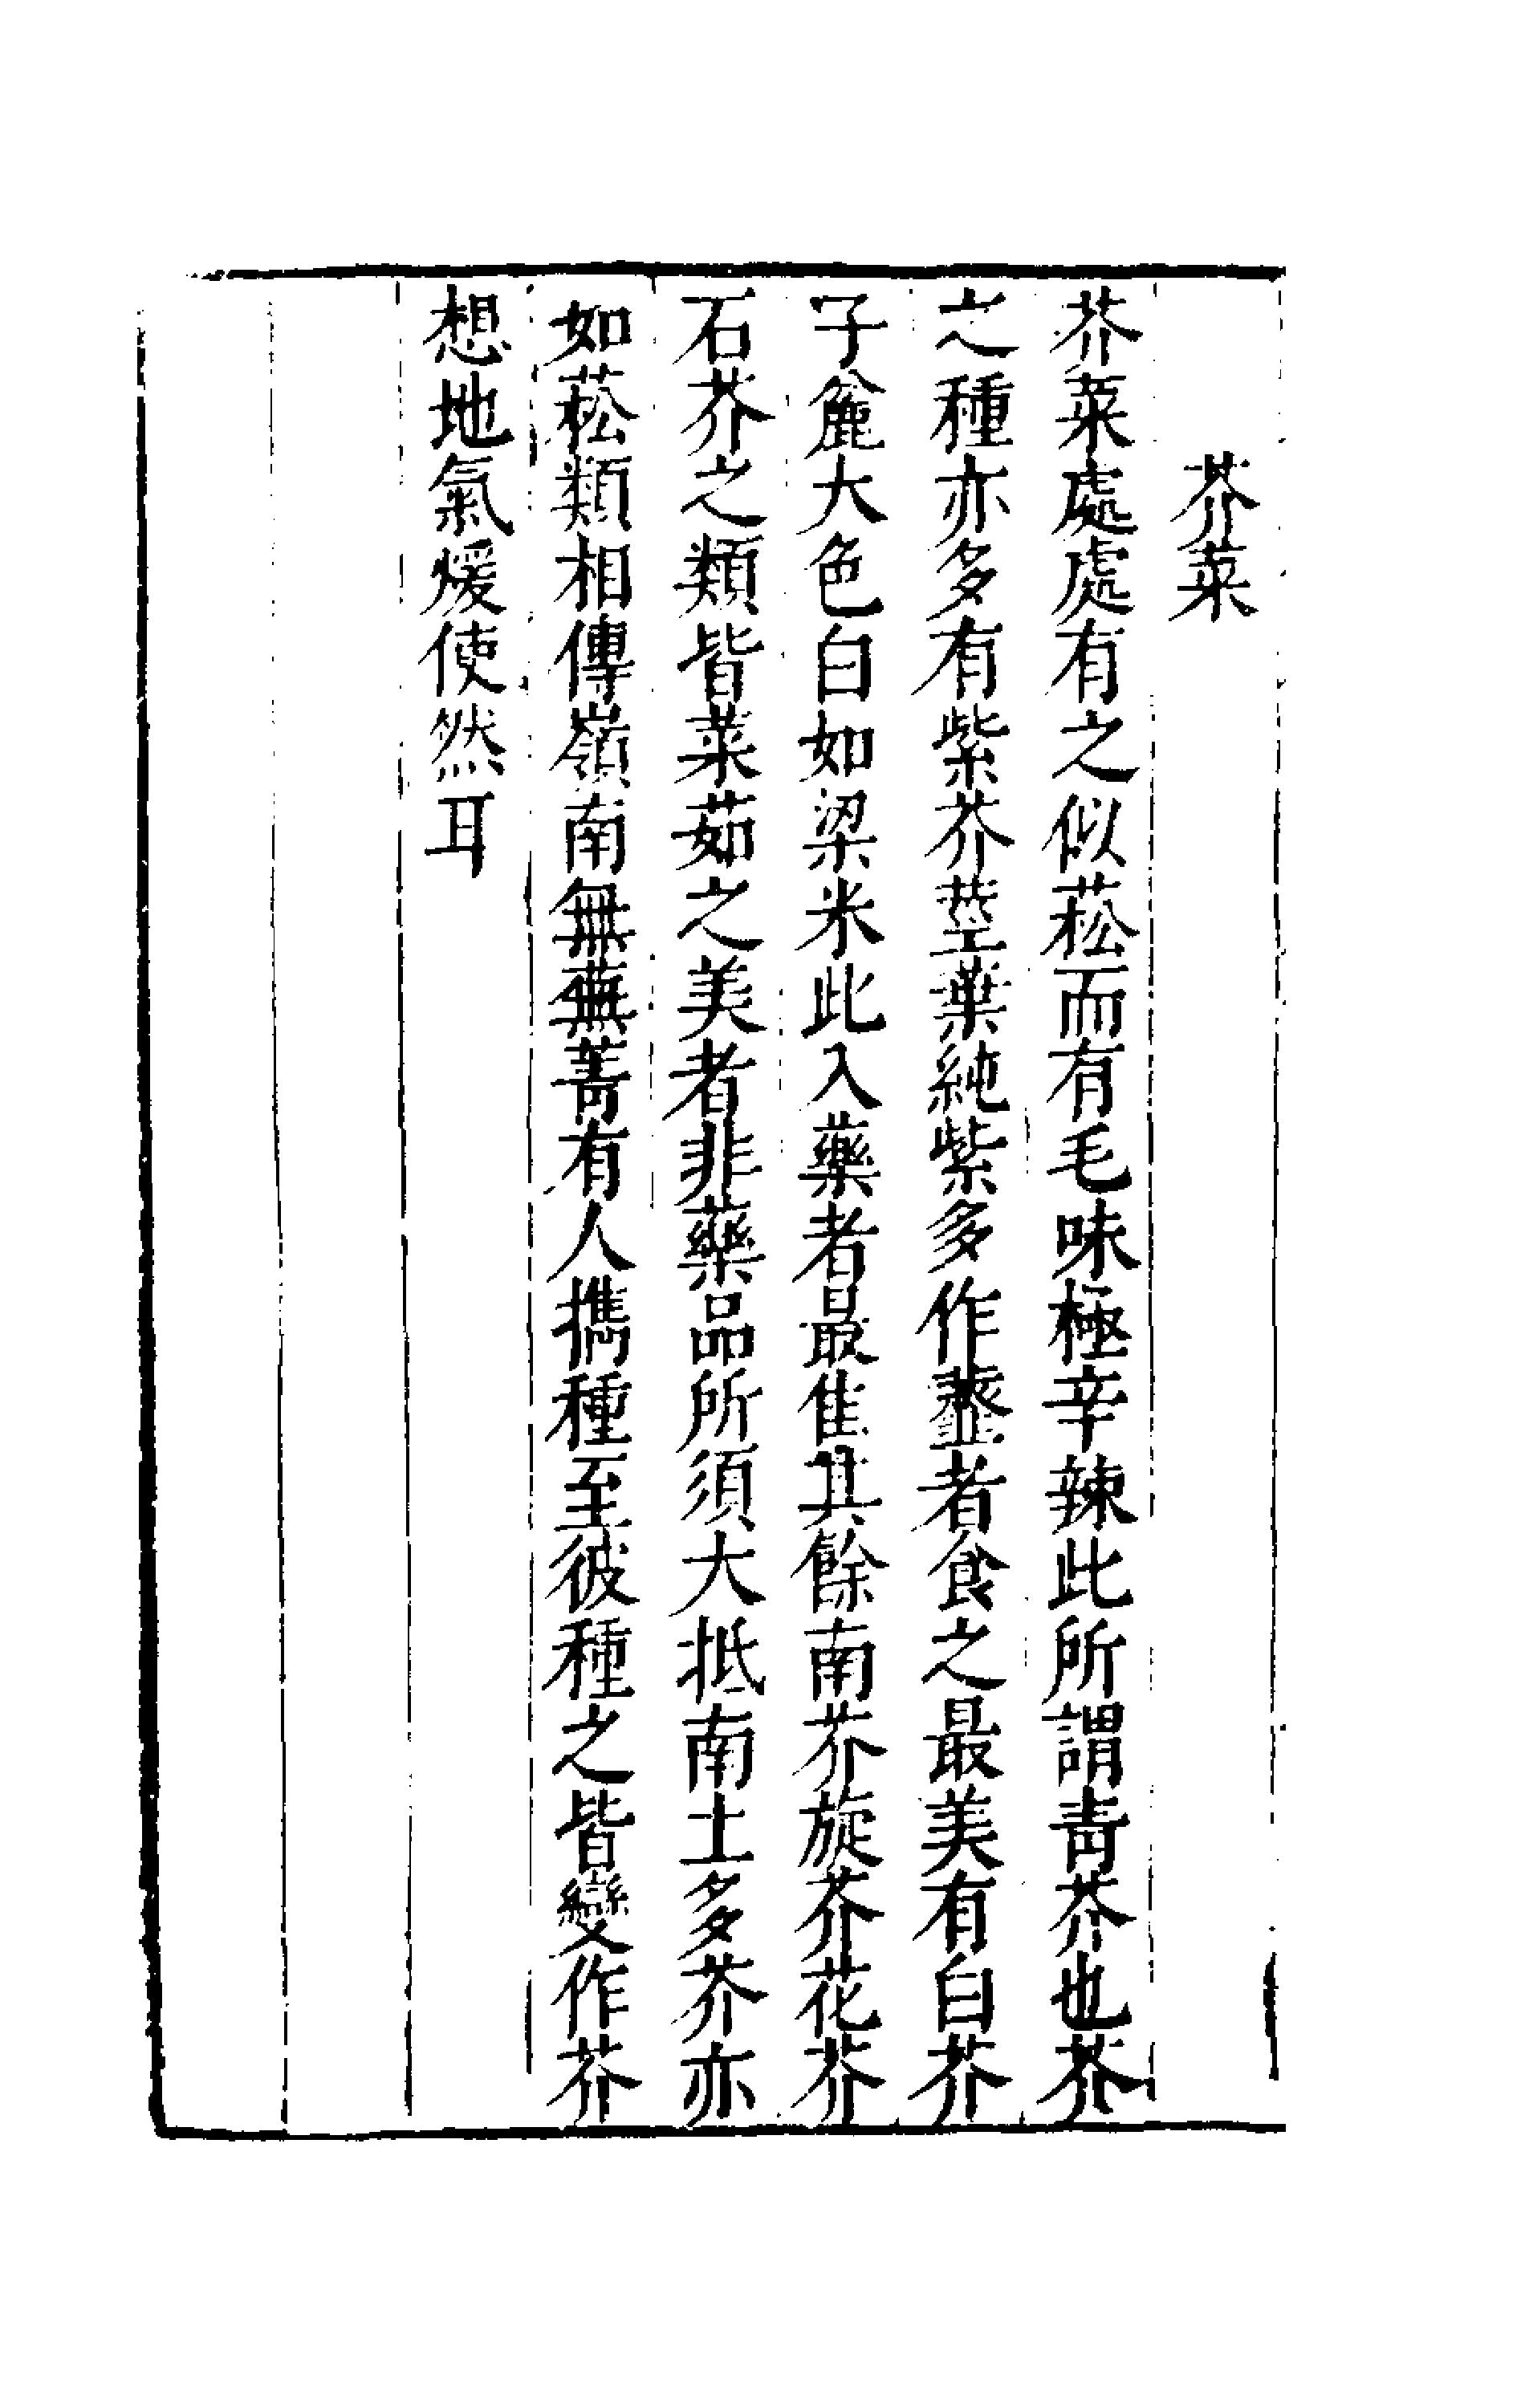 芥菜
芥菜處處有之似菘而有毛味極辛辣此所謂青芥也芥
之種亦多有紫芥莖葉純紫多作虀者食之最美有白芥
子麄大色白如梁米此入藥者最佳其餘南芥旋芥花芥
石芥之類皆菜茹之美者非藥品所須大抵南土多芥亦
如菘類相傳嶺南無蕪菁有人攜種至彼種之皆變作芥
想地氣煖使然耳